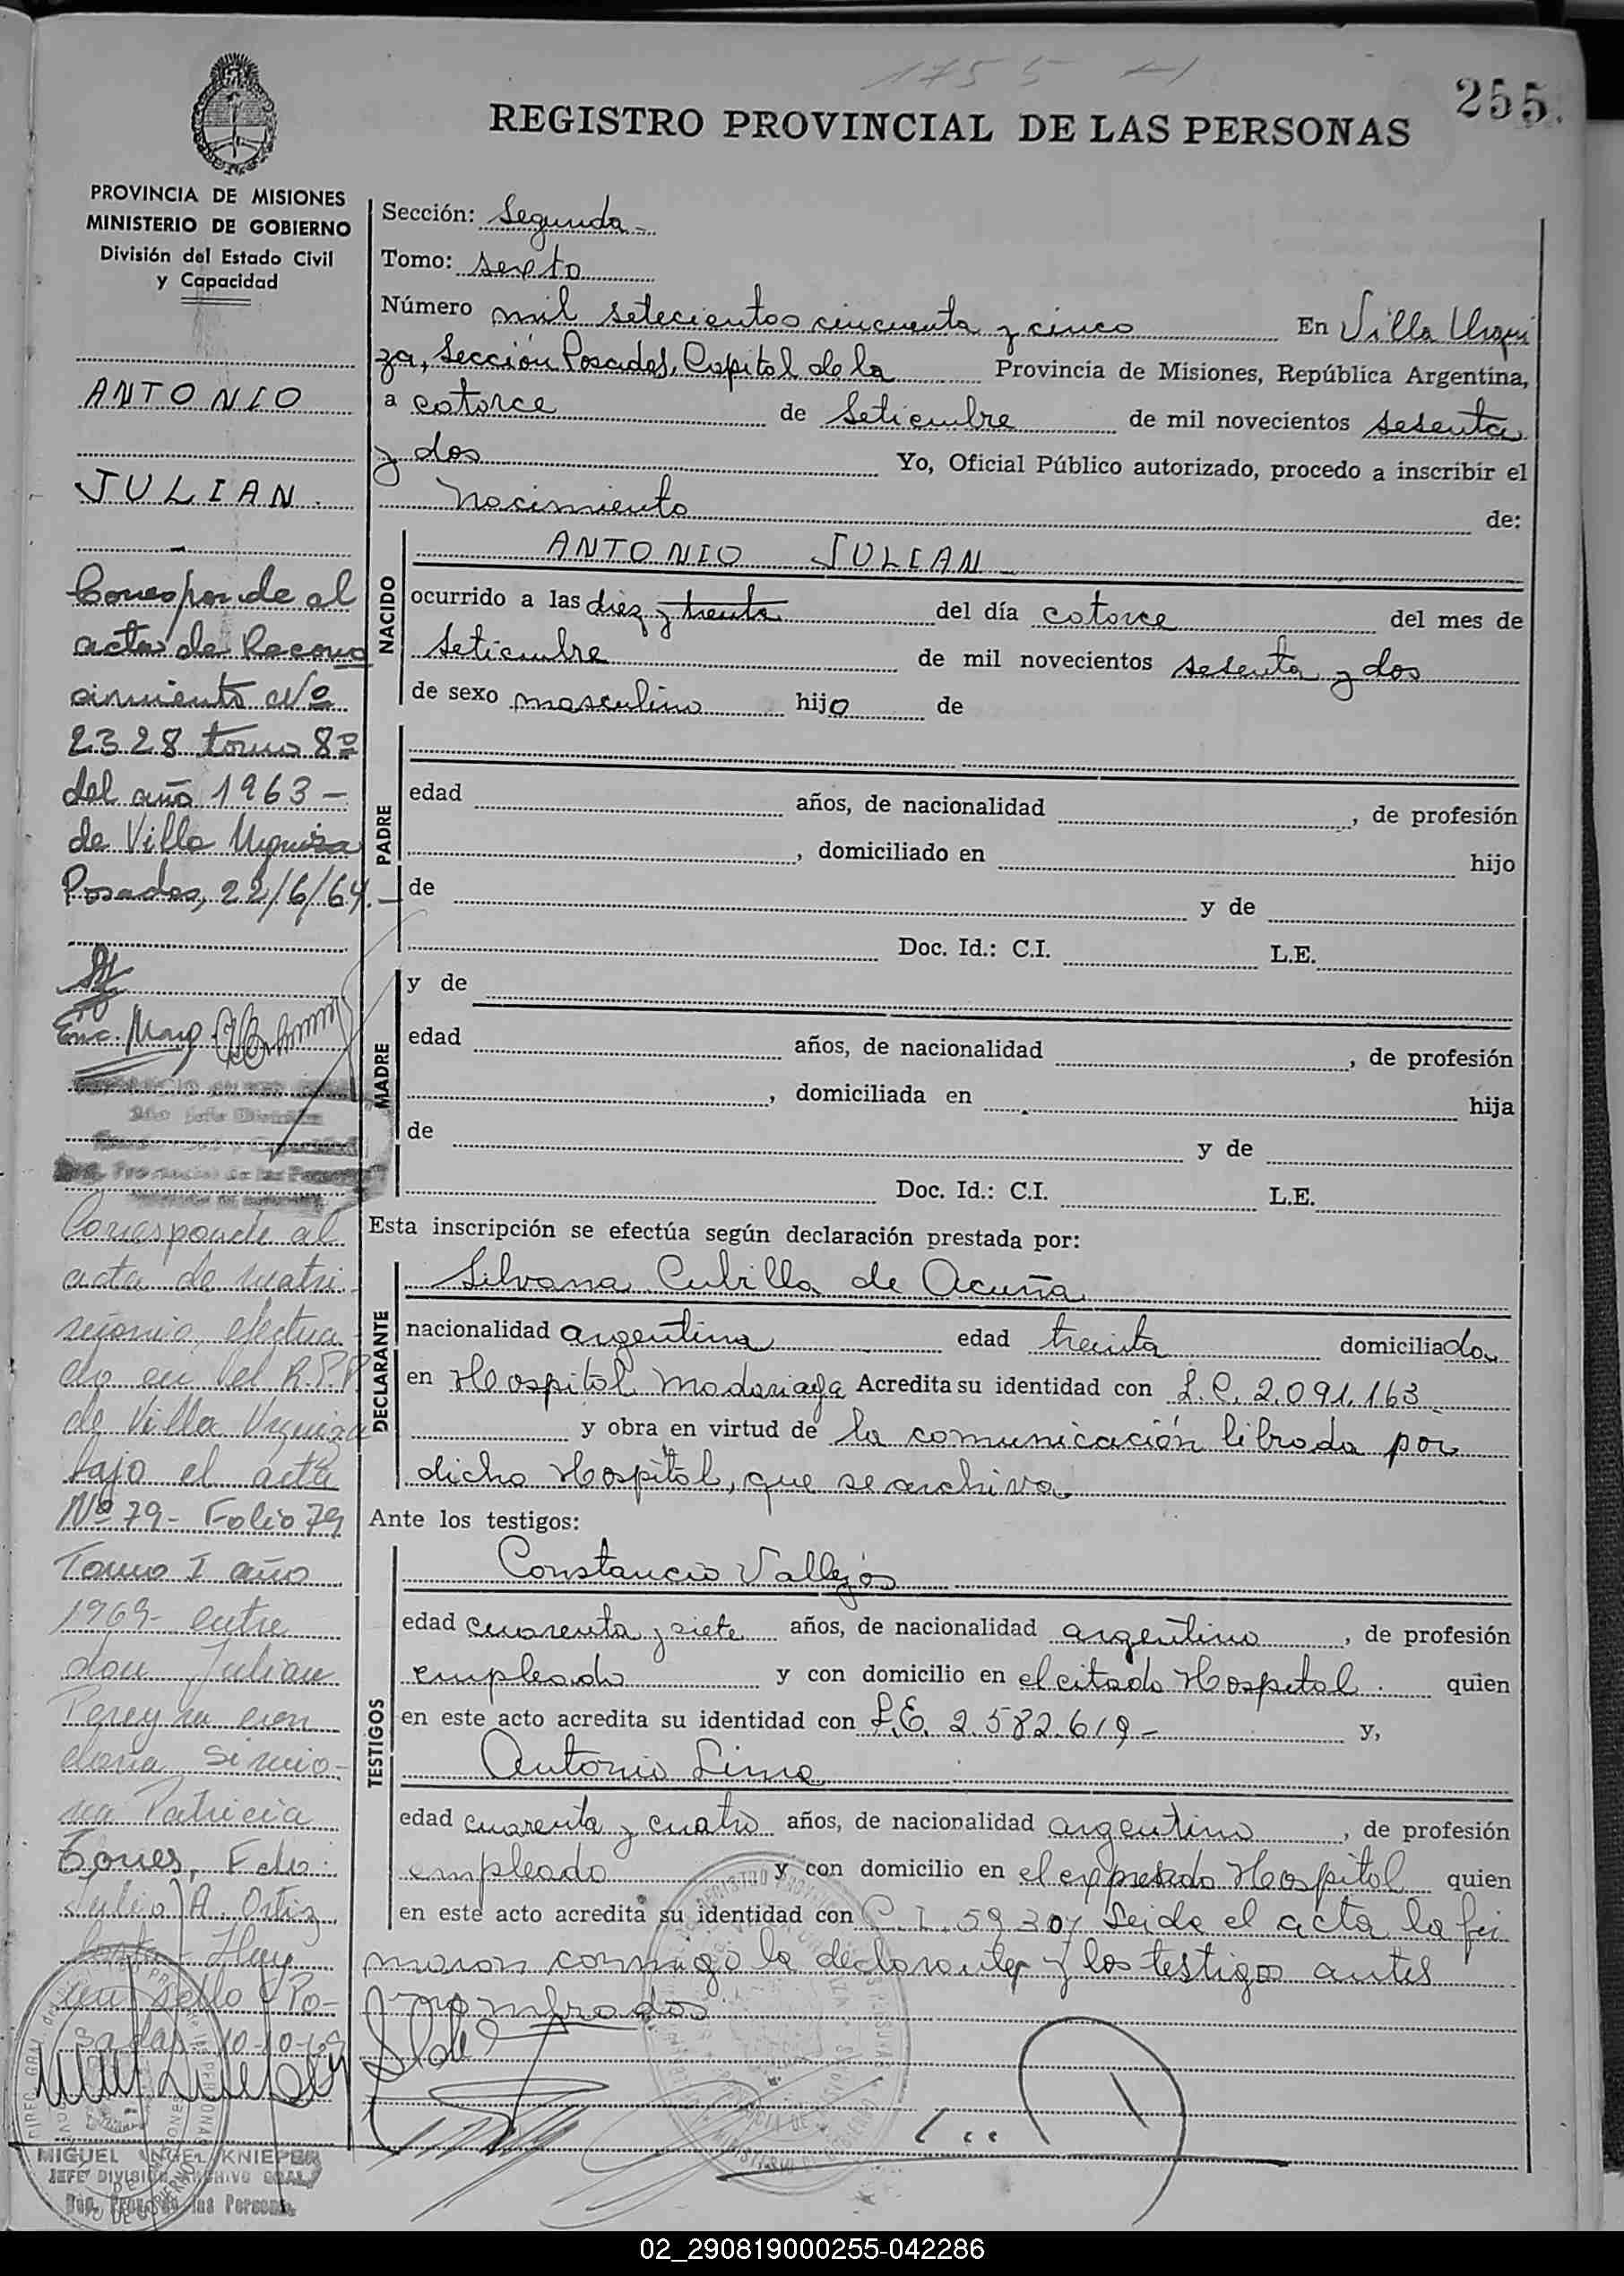 1755
255.
REGISTRO PROVINCIAL DE LAS PERSONAS
PROVINCIA DE MISIONES
MINISTERIO DE GOBIERNO
División del Estado Civil
y Capacidad
ANTONIO
JULIAN.
Corresponde al
acta de Recono
cimiento Nº
2328 tomo 8º
del año 1963 -
de Villa Urquiza
Posadas, 22/6/64.-
Corresponde al
acta de matri
monio, efectua
do en el R.P.P.
de Villa Urquiza
bajo el acta
Nº 79 - Folio 79
Tomo I año
1969 - entre
don Julian
Pereyra con
doña Simio-
na Patricia
A. Ortiz
sello Po-
sadas 10-10-
MIGUEL ANGEL KNIEPER
JEFE DIVISION ARCHIVO GRAL.
Sección: Segunda.-
Tomo: sexto
Número mil setecientos cincuenta y cinco En Villa Urqui
za, Sección Posadas, Capital de la Provincia de Misiones, República Argentina,
a catorce de Setiembre de mil novecientos sesenta
y dos Yo, Oficial Público autorizado, procedo a inscribir el
Nacimiento de:
NACIDO
ANTONIO JULIAN
ocurrido a las diez y treinta del día catorce del mes de
Setiembre de mil novecientos sesenta y dos
de sexo masculino hijo de
PADRE
edad años, de nacionalidad , de profesión
, domiciliado en hijo
de y de
Doc. Id.: C.I. L.E.
MADRE
y de
edad años, de nacionalidad , de profesión
, domiciliada en hija
de y de
Doc. Id.: C.I. L.E.
Esta inscripción se efectúa según declaración prestada por:
DECLARANTE
Silvana Cubilla de Acuña
nacionalidad argentina edad treinta domiciliada
en Hospital Madariaga Acredita su identidad con L.C. 2.091.163
y obra en virtud de la comunicación librada por
dicho Hospital, que se archiva
Ante los testigos:
TESTIGOS
Constancio Vallejos
edad cuarenta y siete años, de nacionalidad argentino , de profesión
empleado y con domicilio en el citado Hospital. quien
en este acto acredita su identidad con L.E. 2.582.619- y,
Antonio Lima
edad cuarenta y cuatro años, de nacionalidad argentino , de profesión
empleado y con domicilio en el expresado Hospital quien
en este acto acredita su identidad con C.I. 59307 Leida el acta la fir
maron conmigo la declarante y los testigos antes
nombrados
02_290819000255-042286